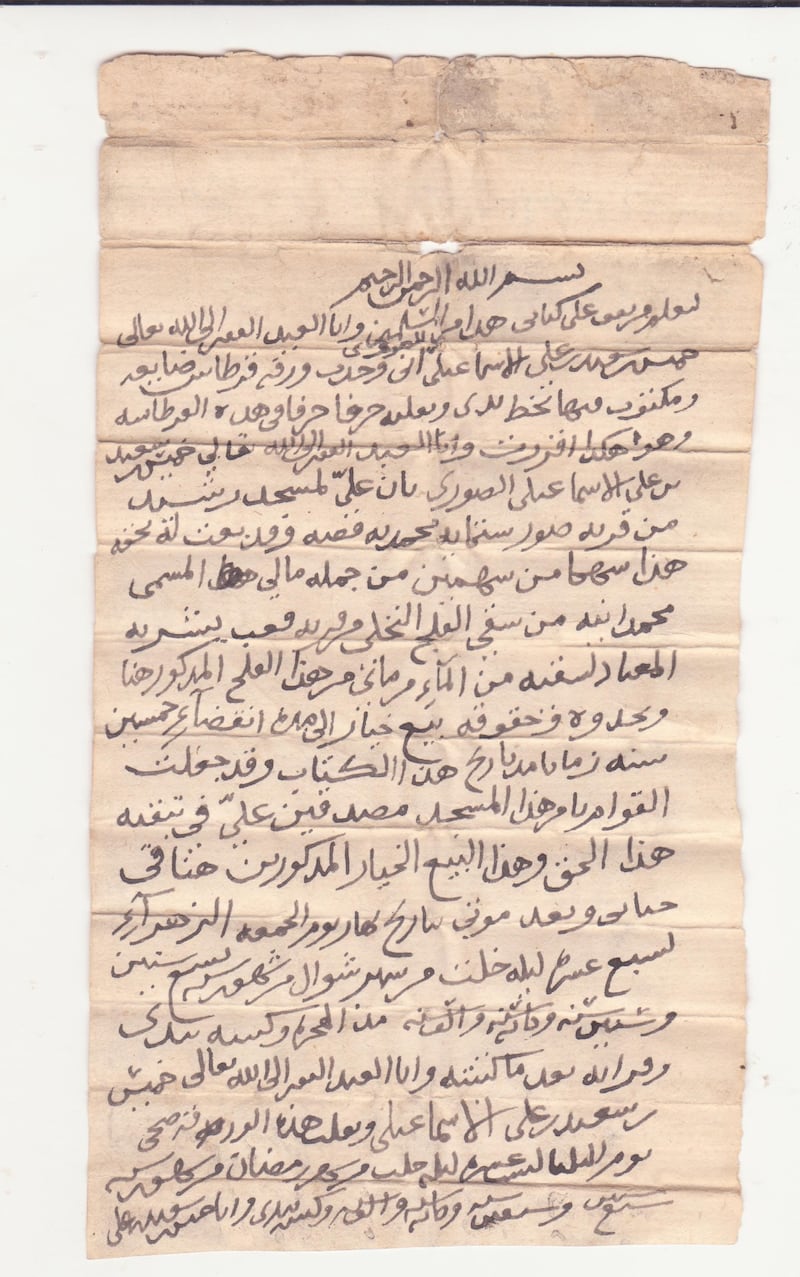 بسم الله الرحمن الرحيم
ليعلم من يقف على كتابي هذا من المسلمين وانا العبد الفقير الى الله تعالى
خميس بن سعيد بن علي الاسماعيلي الصوري اني وجدت ورقة قرطاس ضايعه
ومكتوب فيها بخط يدي ونقلته حرفا حرفا في هذه القرطاسه
وهو هكذا اقررت وانا العبد الفقير الى الله تعالى خميس بن سعيد
بن علي الاسماعيلي الصوري بان عليّ لمسجد
من قرية صور ستماية محمديه فضه وقد بعت له بحقه
هذا سهما من سهمين من جملة مالي المسمى
من سقي الفلج النخلي من قرية
المعتاد لسقيه من المآء من مائي من هذا الفلج المذكور هنا
وبحدوده وحقوقه بيع خيار الى مدة انقضآء خمسين
سنة زمانا من تاريخ هذا الكتاب وقد جعلت
القوام بامر هذا المسجد مصدقين عليّ في تبقيه
هذا الحق وهذا البيع الخيار المذكورين هنا في
حياتي وبعد موتي بتاريخ نهار يوم الجمعه الزهرآء
لسبع عشرة ليلة خلت من شهر شوال من شهور سنة تسع سنين
وستين سنه ومائة سنه والف سنه وكتبه بيدي
وقراته بعد ما كتبته وانا العبد الفقير الى الله تعالى خميس
بن سعيد بن علي الاسماعيلي ونقلت هذه الورقة ضحى
يوم الثلثا عشرة ليلة خلت من شهر رمضان من شهور سنة
سبع سنين وسبعين سنه ومائة والف وكتبته بيدي وانا خميس بن سعيد بن علي